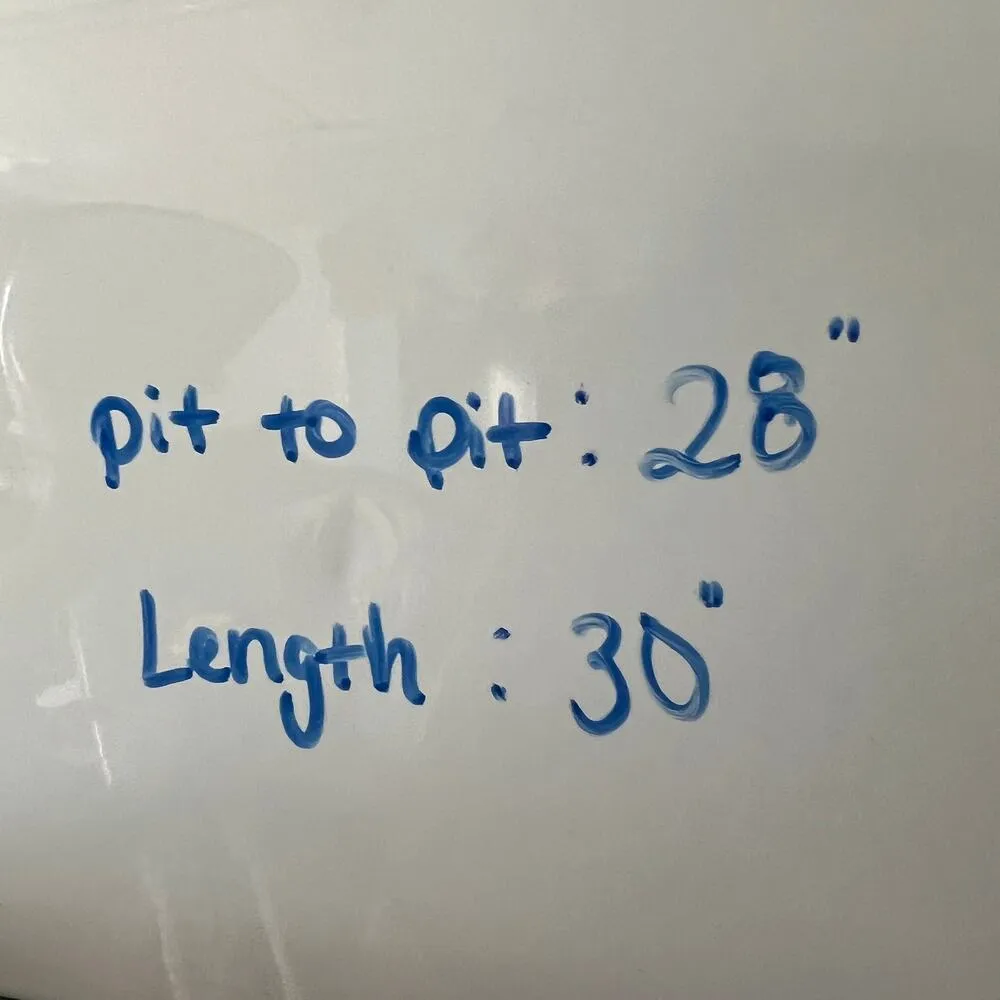 pit to pit : 28"
Length : 30"